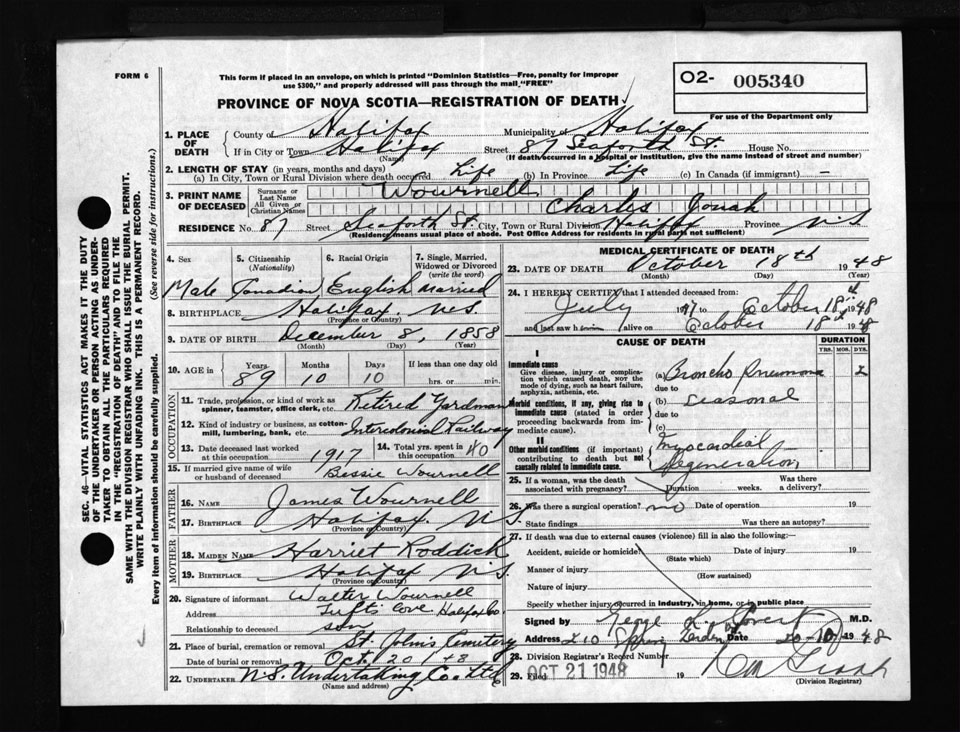 FORM 6
This form if placed in an envelope, on which is printed "Dominion Statistics—Free, penalty for improper
use $300," and properly addressed will pass through the mail "FREE"
O2- 005340
For use of the Department only
PROVINCE OF NOVA SCOTIA—REGISTRATION OF DEATH
SEC. 46—VITAL STATISTICS ACT MAKES IT THE DUTY
OF THE UNDERTAKER OR PERSON ACTING AS UNDER-
TAKER TO OBTAIN ALL THE PARTICULARS REQUIRED
IN THE "REGISTRATION OF DEATH" AND TO FILE THE
SAME WITH THE DIVISION REGISTRAR WHO SHALL ISSUE THE BURIAL PERMIT.
WRITE PLAINLY WITH UNFADING INK. THIS IS A PERMANENT RECORD.
Every item of information should be carefully supplied. (See reverse side for instructions.)
1. PLACE OF DEATH
County of Halifax Municipality of Halifax
If in City or Town Halifax (Name) Street 87 Seaforth St. House No.
(If death occurred in a hospital or institution, give the name instead of street and number)
2. LENGTH OF STAY (in years, months and days)
(a) In City, Town or Rural Division where death occurred Life (b) In Province Life (c) In Canada (if immigrant) —
3. PRINT NAME OF DECEASED
Surname or Last Name Wournell
All Given or Christian Names Charles Jonah
RESIDENCE No. 87 Street Seaforth St. City, Town or Rural Division Halifax Province N.S
(Residence means usual place of abode. Post Office Address for residents in rural parts not sufficient)
4. Sex Male
5. Citizenship (Nationality) Canadian
6. Racial Origin English
7. Single, Married, Widowed or Divorced (write the word) Married
8. BIRTHPLACE Halifax N.S.
(Province or Country)
9. DATE OF BIRTH December 8, 1858
(Month) (Day) (Year)
10. AGE in Years 89 Months 10 Days 10 If less than one day old hrs. or min.
OCCUPATION
11. Trade, profession, or kind of work as spinner, teamster, office clerk, etc. Retired Yardman
12. Kind of industry or business, as cotton-mill, lumbering, bank, etc. Intercolonial Railway
13. Date deceased last worked at this occupation 1917
14. Total yrs. spent in this occupation 40
15. If married give name of wife or husband of deceased Bessie Wournell
FATHER
16. NAME James Wournell
17. BIRTHPLACE Halifax. N.S.
(Province or Country)
MOTHER
18. MAIDEN NAME Harriet Roddick
19. BIRTHPLACE Halifax N.S.
(Province or Country)
20. Signature of informant Walter Wournell
Address Tufts Cove Halifax Co.
Relationship to deceased son
21. Place of burial, cremation or removal St. John's Cemetery
Date of burial or removal Oct. 20 / 48
22. UNDERTAKER N.S. Undertaking Co Ltd
(Name and address)
MEDICAL CERTIFICATE OF DEATH
23. DATE OF DEATH October 18th 1948
(Month) (Day) (Year)
24. I HEREBY CERTIFY that I attended deceased from:
July 1947 to October 18th 1948
and last saw him alive on October 18th 1948
CAUSE OF DEATH
DURATION
YRS. MOS. DYS.
I
Immediate cause
Give disease, injury or complication which caused death, NOT the mode of dying, such as heart failure, asphyxia, asthenia, etc.
(a) Broncho Pneumonia 2
due to
Morbid conditions, if any, giving rise to immediate cause (stated in order proceeding backwards from immediate cause).
(b) Seasonal
due to
(c)
II
Other morbid conditions (if important) contributing to death but not causally related to immediate cause.
Myocardial
Degeneration
25. If a woman, was the death associated with pregnancy? Duration weeks. Was there a delivery?
26. Was there a surgical operation? no Date of operation 19
State findings Was there an autopsy?
27. If death was due to external causes (violence) fill in also the following:—
Accident, suicide or homicide? Date of injury 19
(State which)
Manner of injury
(How sustained)
Nature of injury
Specify whether injury occurred in industry, in home, or in public place
Signed by George M.D.
Address 210 Spring Garden Date 20-10 1948
28. Division Registrar's Record Number
29. Filed OCT 21 1948 19
(Division Registrar)